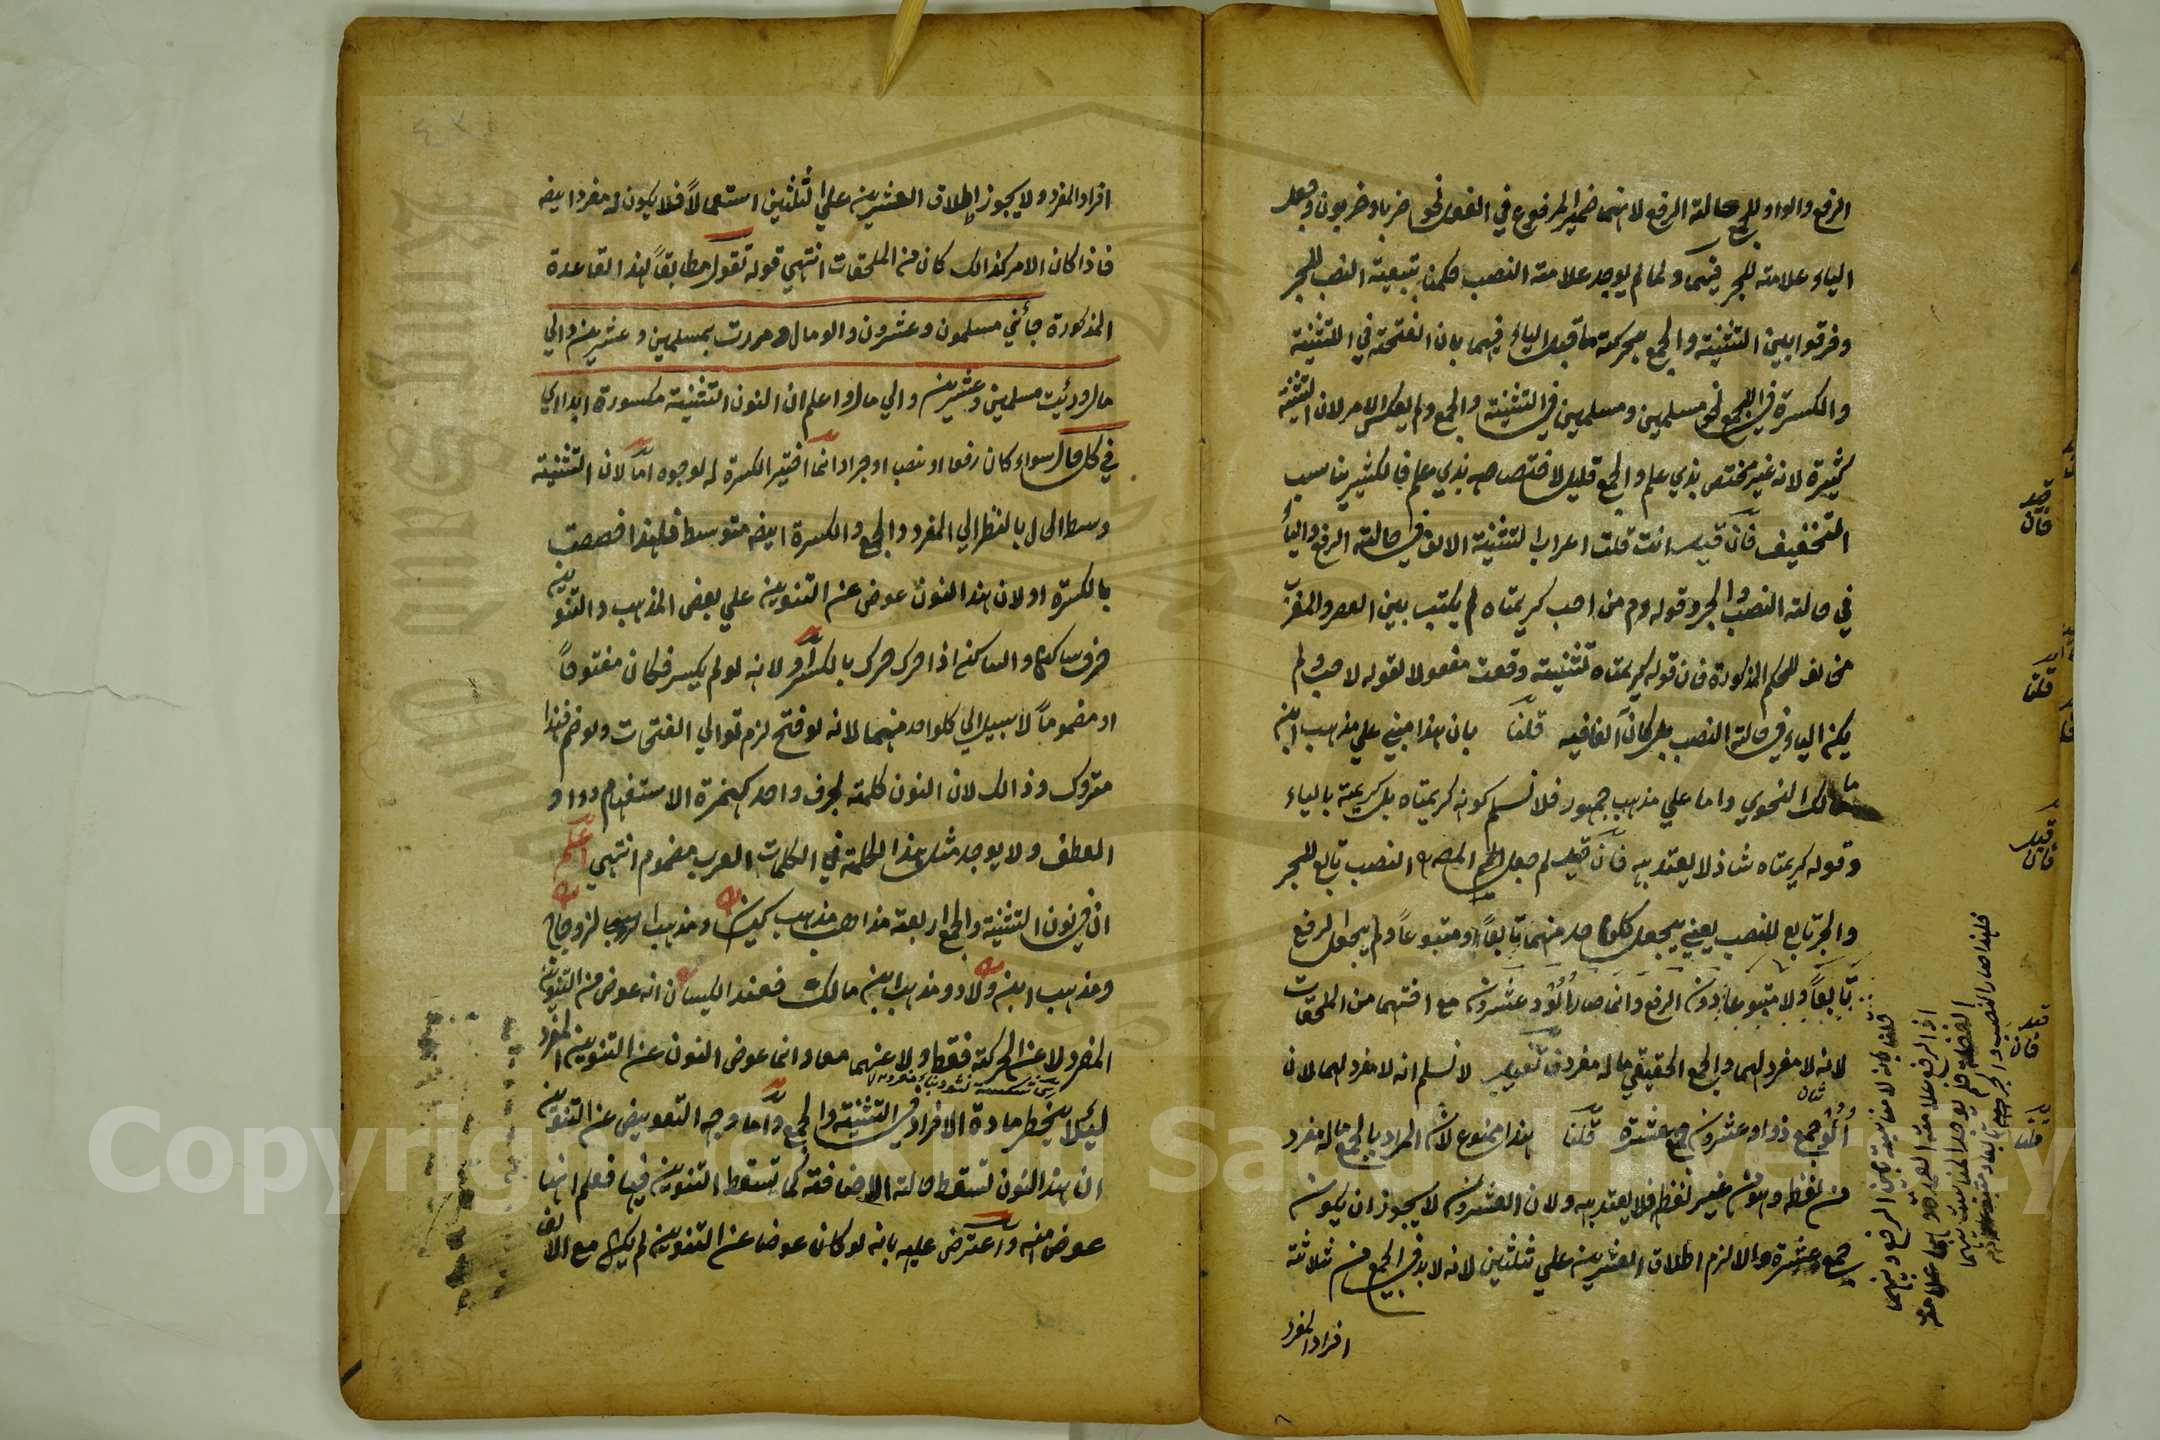 الرفع والواو للجمع حالة الرفع لانهما ضمير المرفوع في الفعل نحو ضربا وضربون وجعل
الياء علامته للجر فيهما ولما لم يوجد علامته النصب حكمنا بتبعيته النصب للجر
وفرقوا بين التثنيته والجمع بحركته ما قبل الياء فيهما بان الفتحته في التثنيته
والكسرة في الجمع نحو مسلمين ومسلمين في التثنيته والجمع ولم يعكس الامر لان التثنيته
كثيرة لانه غير مختص بذي علم والجمع قليل لاختصاصه بذي علم فالكثير يناسب
التخفيف فان قيل انت قلت اعراب التثنيته الالف في حالته الرفع والياء
في حالته النصب والجر وقوله وم من احب كريمتاه لم يكتب بين العصر والمغرب
مخالف للحكم المذكورة فان قوله كريمتاه تثنيته وقعت مفعولا لقوله لاحب ولم
يكن الياء في حالته النصب بل كان الفا فيه قلنا بان هذا مبني علي مذهب ابن
مالك النحوي واما علي مذهب جمهور فلا نسلم كونه كريمتاه بل كريمته بالياء
وقوله كريمتاه شاذ لا يعتد به فان قيل لم جعل النصب تابع للجر
والجر تابع للنصب يعني يجعل كلواحد منهما تابعاً ومتبوعاً ولم يجعل الرفع
تابعاً ولا متبوعاً بدون الرفع وانما صار اُلُوْ و عشرون مع اختهما من الملحقات
لانه لا مفرد لهما والجمع الحقيقي ماله مفرد فان قيل لا نسلم انه لا مفرد لهما لان
اُلُوْ جمع ذو او عشرون جمع عشرة قلنا هذا ممنوع لان المراد بالجمع ماله مفرد
من لفظه وهو من غير لفظه فلا يعتد به ولان العشرون لا يجوز ان يكون
جمع عشرة والا لزم اطلاق العشرين علي ثلثين لانه لا بد في الجمع من ثلاثته
افراد المفرد
قلنا بانه لا مناسبة بين الرفع وبينهما
اذ الرفع علامته العمدة وهما علامته
الفضلة فلم يوجد المناسبة بينهما
فلهذا صار النصب والجر
فان قيل
قلنا
فان قيل
فان قيل
قلنا
افراد المفرد ولا يجوز اطلاق العشرين علي ثلثين استعمالاً فلا يكون ومفردا ايضه
فاذا كان الامر كذالك كان من الملحقات انتهي قوله تقول مطابقاً لهذا القاعدة
المذكورة جائني مسلمون وعشرون والو مال ومررت بمسلمين وعشرين والي
مال ورئيت مسلمين وعشرين والي مال واعلم ان النون التثنيته مكسورة ابدا اي
في كل حال سواء كان رفعا او نصب او جرا وانما اختير الكسرة له لوجوه اما لان التثنيته
وسط الحال بالنظر الي المفرد والجمع والكسرة ايضه متوسط فلهذا خصصت
بالكسرة او لان هذا النون عوض عن التنوين علي بعض المذهب والتنوين
حرف ساكن والساكن اذا حرك حرك بالكسر او لانه لو لم يكسر فكان مفتوحاً
او مضموماً لا سبيل الي كلواحد منهما لانه لو فتح لزم توالي الفتحات ولو ضم فهذا
متروك وذالك لان النون كلمته بحرف واحد كهمزة الاستفهام وواو
العطف ولا يوجد مثل هذا الكلمته في الكلمات العرب مضموم انتهي اعلم
ان في نون التثنيته والجمع اربعته مذاهب مذهب كيسان ومذهب الزجاج
ومذهب ابن ولاد ومذهب ابن مالك فعند الكيسان انه عوض من التنوين
المفرد لا عن الحركته فقط ولا عنهما معا وانما عوض النون عن التنوين المفرد
لئلا يخطر مادة الافراد في التثنيته والجمع واما وجه التعويض عن التنوين
ان هذا النون تسقط حالته الاضافته كما تسقط التنوين فيها فعلم انها
عوض منه واعترض عليه بانه لو كان عوضا عن التنوين لم يكن مع الالف
Copyright © King Saud University
1957